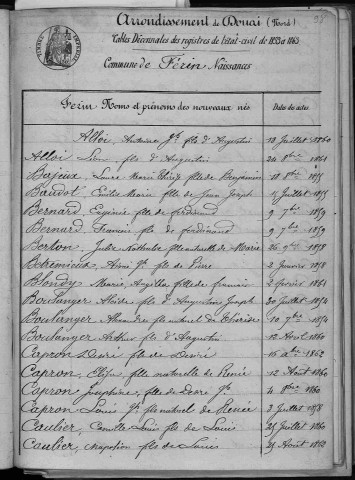 Arrondissement de Douai (Nord)
Tables Décennales des registres de l'état-civil de 1853 à 1863
Commune de Férin Naissances
Férin Noms et prénoms des nouveaux nés
Dates des actes
Alloi, Antoine Jh fils d'Augustin 18 Juillet 1860
Alloi Léon fils d'Augustin 24 1861
Bajeux, Louis fille de Benjamin 18 8bre 1855
Baudot, Emilie Marie fille de Jean Joseph 15 Juillet 1855
Bernard Eugénie fille de ferdinand 9 7bre 1859
Bernard francois fils de ferdinand 9 7bre 1859
Berlon, Julie Nathalie fille naturelle de Marie 26 9bre 1858
Brémieux, Aimé Jh fils de Pierre 2 Janvier 1858
Blondy Marie fille de francois 2 février 1861
Boulanger Alcide fils d'Augustin Joseph 30 Juillet 1854
Boulanger Alexandre fils naturel de Thérèse 10 7bre 1854
Boulanger Arthur fils d'Augustin 12 Août 1860
Capron Désiré fils de Désiré 16 1862
Capron, fille naturelle de Renée 12 Août 1860
Capron Joséphine, fille de Désiré Jh 4 8bre 1860
Capron Louis Jh fils naturel de Renée 3 Juillet 1858
Caulier, Camille Louis fils de Louis 25 Juillet 1860
Caulier, Napoléon fils de Louis 25 Août 1862